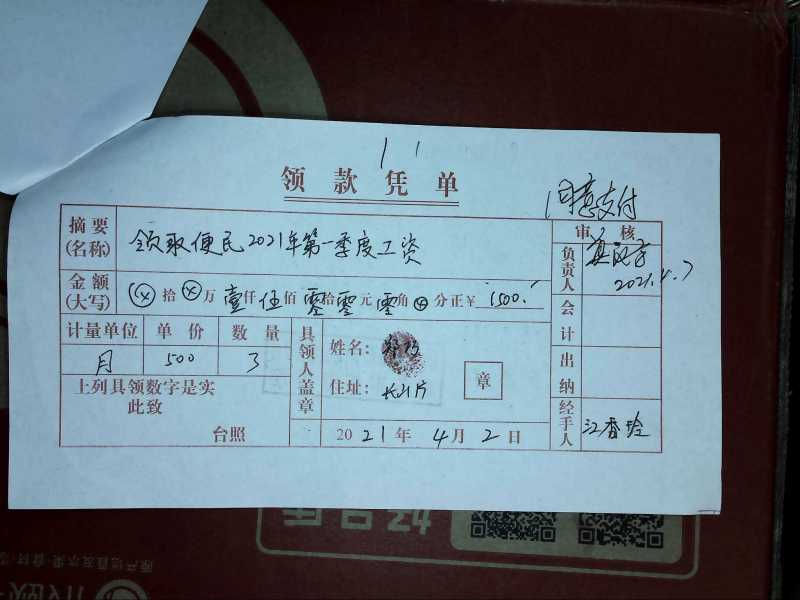 领款凭单
同意支付
摘要(名称) 领取便民2021年第一季度工资
审核
负责人 2021.4.7
金额(大写) ⊗拾⊗万壹仟伍佰零拾零元零角⊗分正¥ 1500.
会计
计量单位 单价 数量
月 500 3
具领人盖章
姓名:
住址:
章
出纳
上列具领数字是实
此致
台照
2021年4月2日
经手人 江香玲
好品质